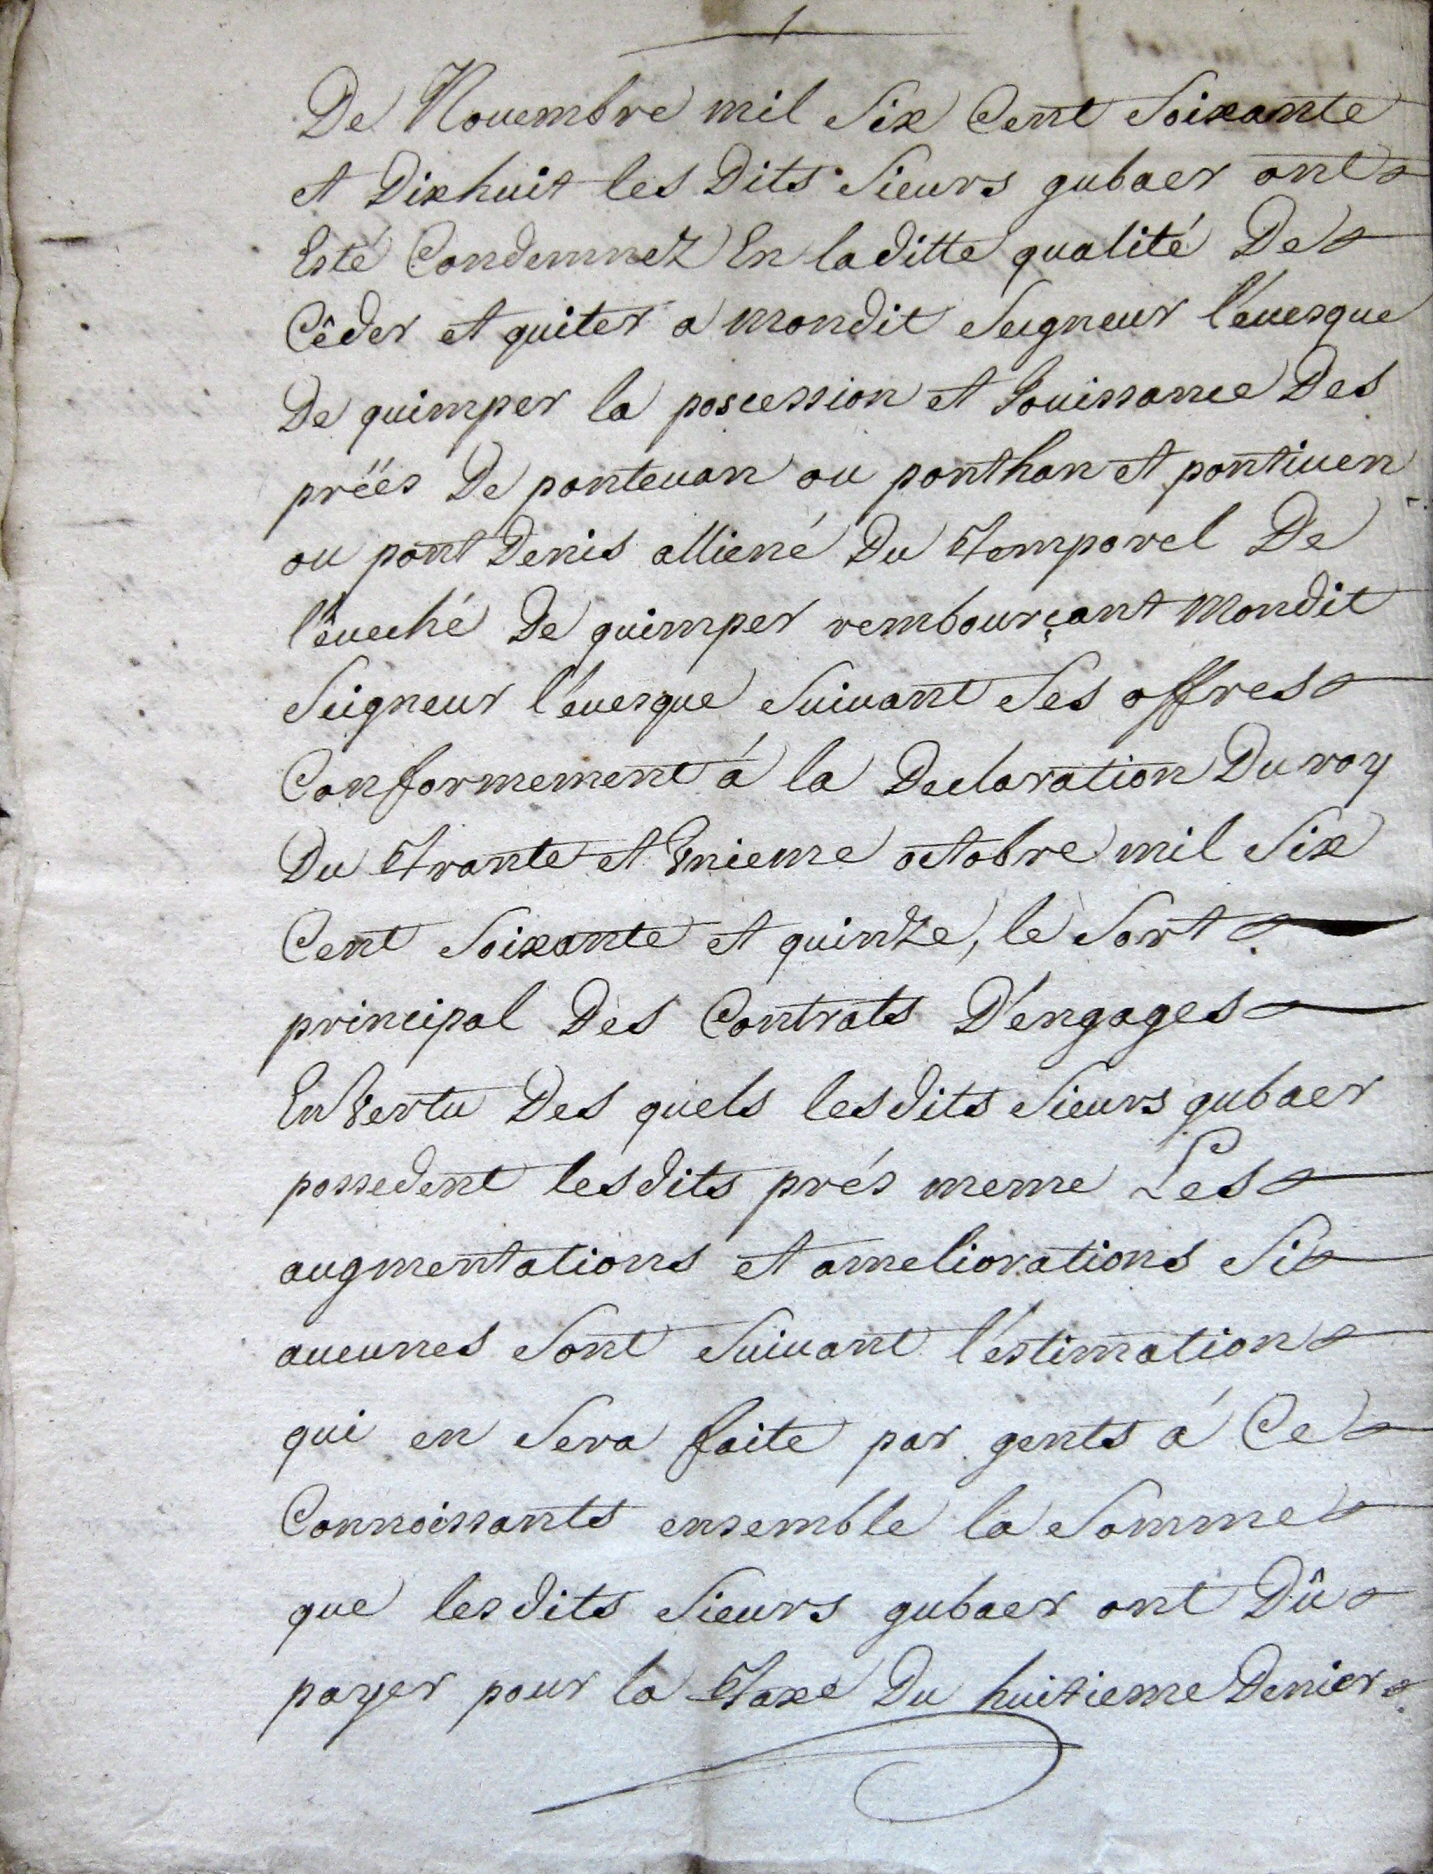 De Nouembre mil Six Cent Soixante
et Dixhuit les Dits Sieurs gubaer ont
Esté Condemnez En laditte qualité De
Cêder et quiter a mondit Seigneur l'éuesque
De quimper la poscession et Jouissance Des
préës De ponteuan ou ponthan et pontiuen
ou pont Denis alliené Du temporel De
l'êueché De quimper rembourçant mondit
Seigneur l'éuesque Suiuant Ses offres
Conformement á la Declaration Du roy
Du trante et Vnieme octobre mil Six
Cent Soixante et quinze, le Sort
principal Des Contrats D'éngages
En Vertu Des quels lesdits Sieurs gubaer
possedent lesdits prés meme Les
augmentations et ameliorations Si
aucunes Sont Suiuant l'éstimation
qui en Sera faite par gents á Ce
Connoissants ensemble la Somme
que lesdits Sieurs gubaer ont Dû
payer pour la taxe Du huitieme Denier